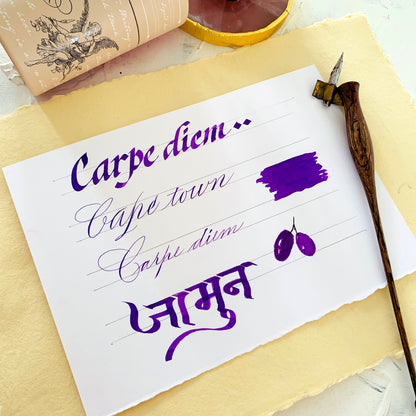 Carpe diem..
Cape town
Carpe diem
जामुन